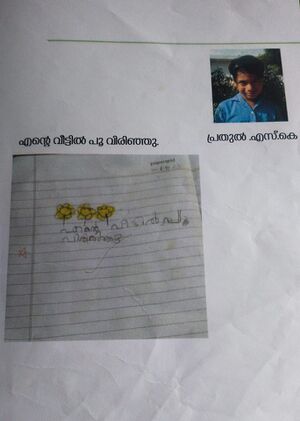 എന്റെ വീട്ടിൽ പൂ വിരിഞ്ഞു.
പ്രതുൽ .എസ്.കെ
എന്റെ വീട്ടിൽ പൂ
വിരിഞ്ഞു